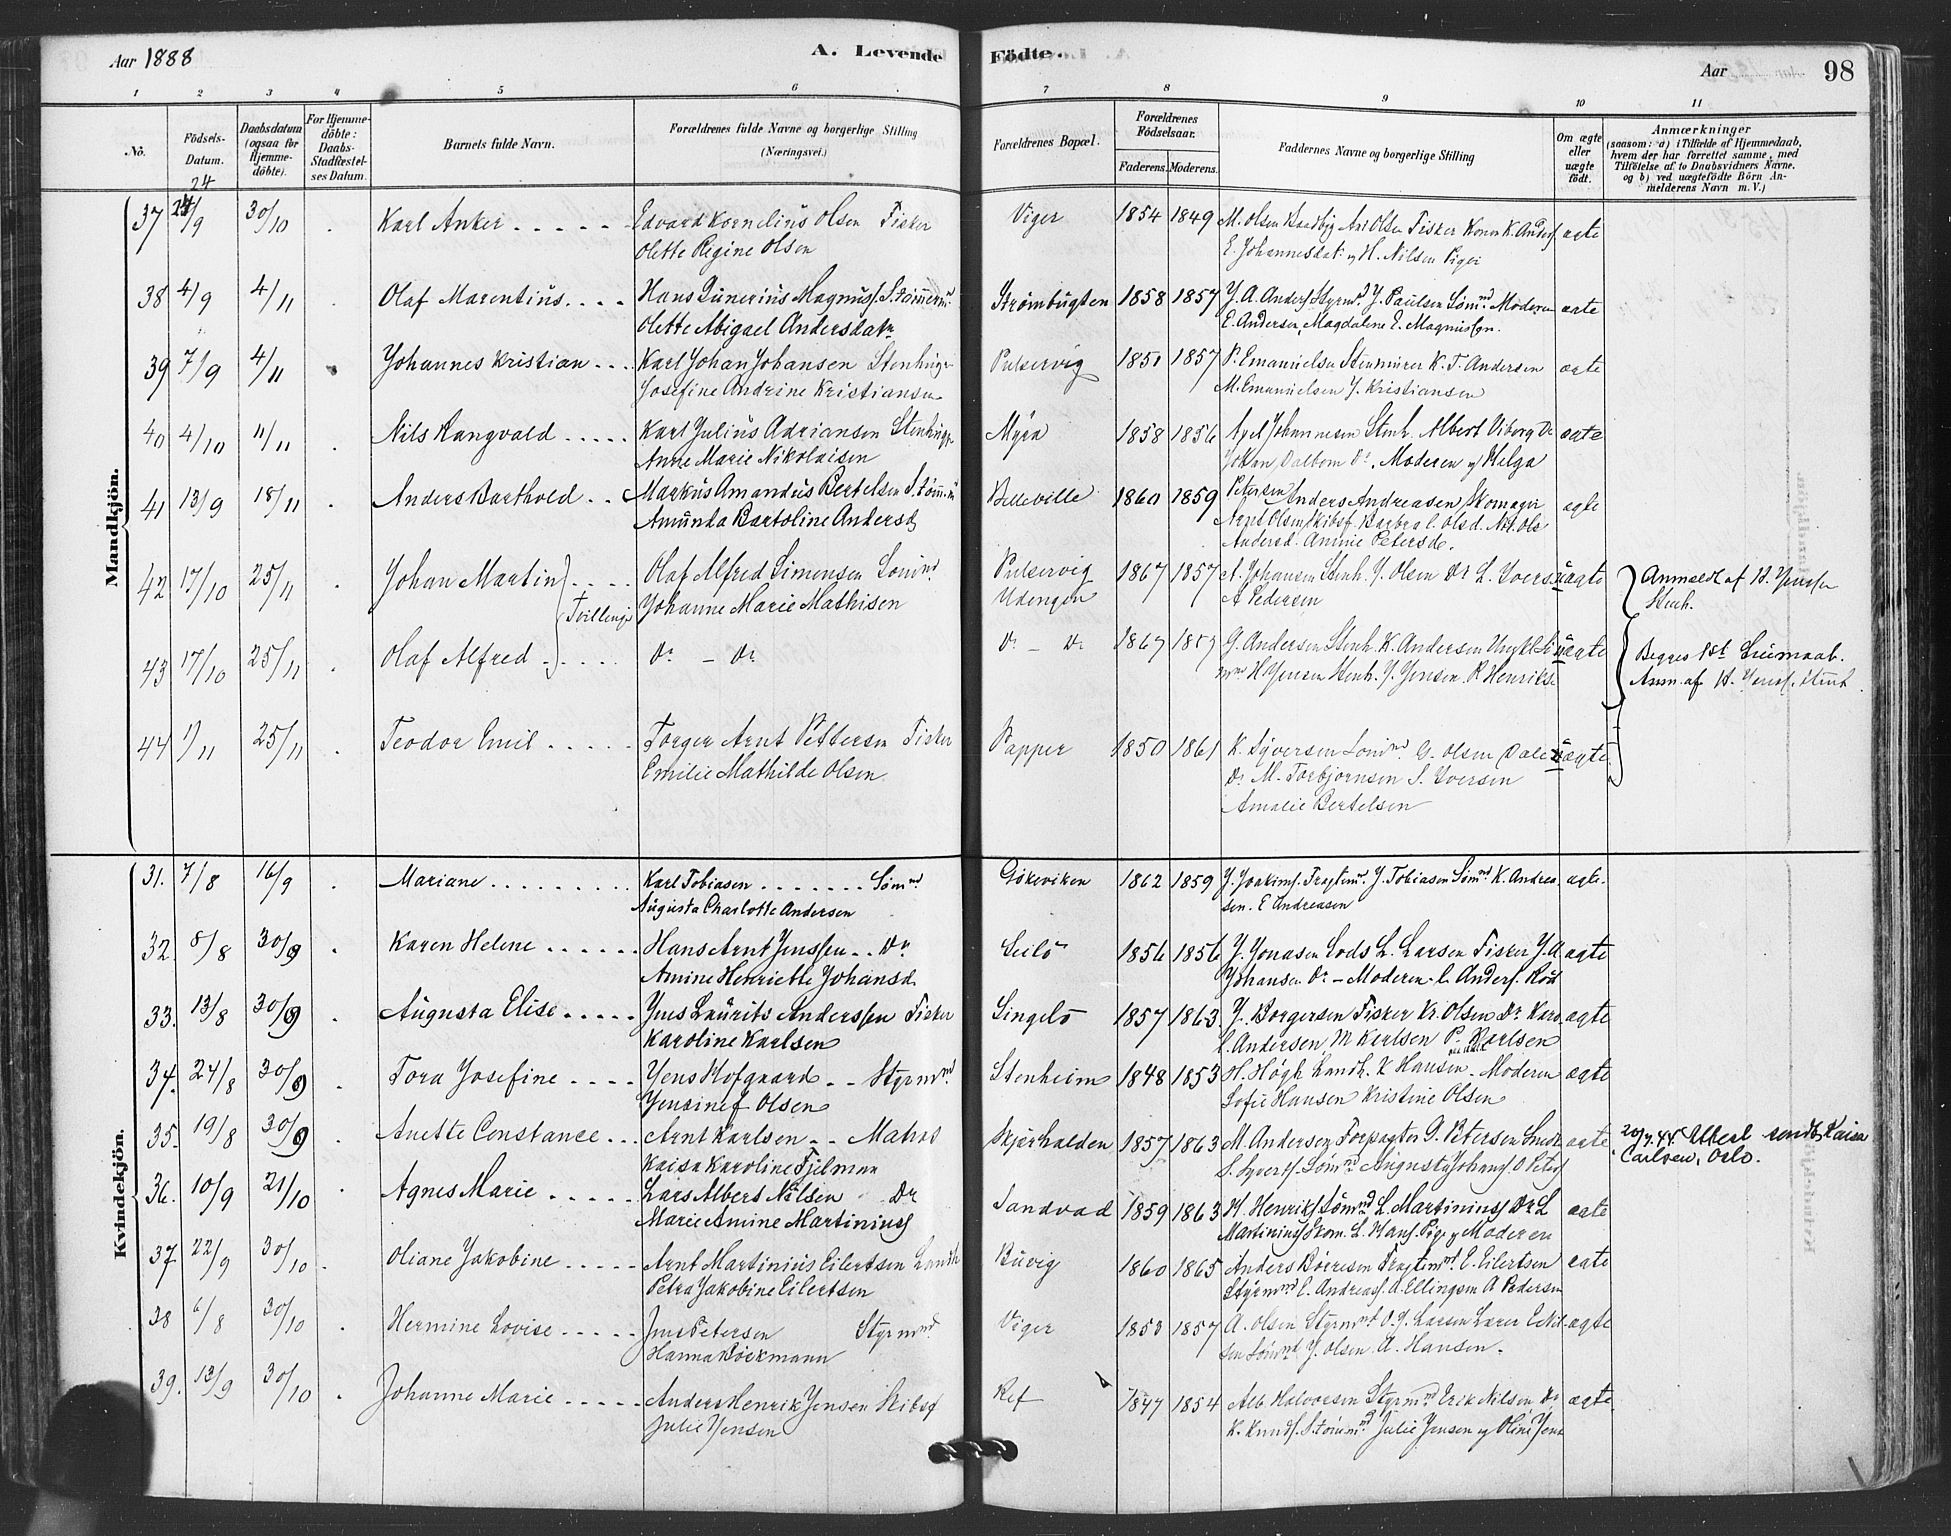 Aar 1888
A. Levende Födte.
Aar 98
1 2 3 4 5 6 7 8 9 10 11
No.
Födsels-Datum.
Daabsdatum (ogsaa for Hjemme-döbte).
For Hjemme-döbte: Daabs-Stadfæstel-ses Datum.
Barnets fulde Navn.
Forældrenes fulde Navne og borgerlige Stilling (Næringsvei.)
Forældrenes Bopæl.
Forældrenes Födselsaar.
Faderens. Moderens.
Faddernes Navne og borgerlige Stilling
Om ægte eller uægte födt.
Anmærkninger
(saasom: a) i Tilfælde af Hjemmedaab, hvem der har forrettet samme, med Tilföielse af to Daabsvidners Navne. og b) ved uægtefödte Börn An-melderens Navn m. V.)
Mandkjön.
37 24/9 30/10 Karl Anker Edvard Kornelius Olsen Fisker Viger 1854 1849 M. Olsen Arl Olsen Fisker Kone K. Anders ægte
Olette Regine Olsen E. Johannesdat. og H. Nilsen Piger
38 4/9 4/11 Olaf Marentius Hans Magnus Strömbugten 1858 1857 J. A. Anders Styrmd J. Paulsen Sömd Moderen ægte
Olette Abigael Andersdatr E. Andersen, Magdalene E. Magnussen.
39 7/9 4/11 Johannes Kristian Karl Johan Johansen Stenhugger Pulservig 1851 1857 P. Emanuelsen Stenmurer K. T. Andersen ægte
Josefine Andrine Kristiansen M. Emanuelsen J. Kristiansen
40 4/10 11/11 Nils Rangvald Karl Julius Adriansen Stenhugger Myra 1858 1856 Axel Johannesen Stenh. Albert Viborg Do ægte
Anne Marie Nikolaisen Johan Dalbom Do, Moderen og Helga
41 13/9 18/11 Anders Barthold Markus Amandus Bertelsen Belleville 1860 1859 Petersen Anders Andreasen Skomager ægte
Amunda Bartoline Andersd Arnt Olsen Skibsf. Barbra C. Olsd.
Andersd. Annie Petersd.
42 17/10 25/11 Johan Martin Olaf Alfred Simensen Sömd Pulservig 1867 1857 A. Johansen Stenh. J. Olsen Do L. Ivers uægte Anmeldt af H. Jenssen
Tvillinger Johanne Marie Mathisen Udengen A Pedersen Stenh.
43 17/10 25/11 Olaf Alfred Do - Do Do - Do 1867 1857 G. Andersen Stenh. K. Andersen uægte Begges 1st Leiermaal.
H Jensen Stenh. J. Jensen. R Henriks Anm. af H. Jens. Stenh.
44 1/11 25/11 Teodor Emil Torger Arnt Pettersen Fisker Papper 1850 1861 K. Syversen Sömd G. Olsen Dale uægte
Emilie Mathilde Olsen Do M. Torbjornsen S. Iversen
Amalie Bertelsen
Kvindekjön.
31. 7/8 16/9 Mariane Karl Tobiasen Sömd Gökeviken 1862 1859 J. Joakims. Fragtemd. J. Tobiasen Sömd K. Andrea ægte.
Augusta Charlotte Andersen sen. E Andreasen
32. 8/8 30/9 Karen Helene Hans Arnt Jenssen Do Seilö 1856 1856 J. Jonasen Lods L. Larsen Fisker J. A ægte
Amine Henriette Johansd Johansen Do - Moderen
33. 13/8 30/9 Augusta Elise Jens Laurits Anderssen Fisker Singelö 1857 1863 J. Borgersen Fisker Kr. Olsen Do Karo. ægte
Karoline Karlsen C. Andersen M Karlsen P. Karlsen
34. 24/8 30/9 Tora Josefine Jens Hofgaard Styrmd. Stenheim 1848 1853 H. Högh Landh. K Hansen Moderen ægte
Jensine J Olsen Sofie Hansen Kristine Olsen
35. 19/8 30/9 Anette Constance Arnt Karlsen Matros Skjærhalden 1857 1863 M. Andersen Forpagter G. Petersen ægte 20/7.44. Attest sendt Kaisa
Kaisa Karoline Fjelman S. Syverts. Sömmd Augusta Johans. O Peters Carlsen, Oslo.
36. 10/9 21/10 Agnes Marie Lars Albert Nilsen Do Sandvad 1859 1863 H. Henriks Sömmd L. Martinius Do L ægte
Marie Amine Martinius Martinius Skom. L. Hans. Pige og Moderen
37 22/9 30/10 Oliane Jakobine Arnt Martinius Eilertsen Landh Buvig 1860 1865 Anders Börresen Fragtemd. E. Eilertsen ægte
Petra Jakobine Eilertsen Styrmd E. Andreas. A. Ellingsen A Pedersen
38 6/8 30/10 Hermine Lovise Jens Petersen Styrmd. Viger 1853 1857 A. Olsen Styrmd O. J. Larsen Lærer E Nil- ægte
Hanna Böckmann sen Sömd J. Olsen A. Hansen.
39. 13/9 30/10 Johanne Marie Anders Henrik Jensen Skibsf Ref 1847 1854 Alb Halvorsen Styrmd Erik Nilsen Do ægte
Julie Jensen K. Knuds. Julie Jensen og Oline Jens